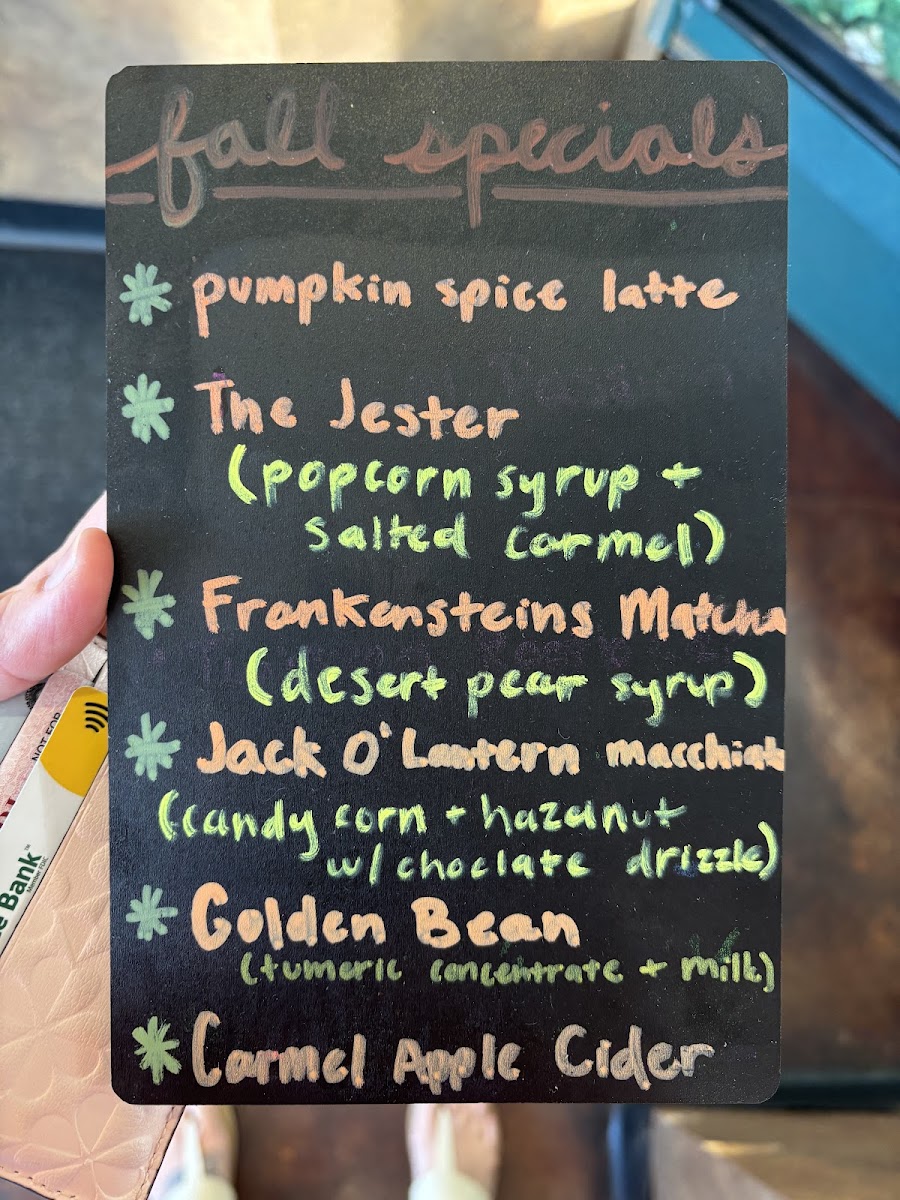 fall specials
pumpkin spice latte
The Jester
(popcorn syrup +
salted carmel)
Frankensteins Matcha
(desert pear syrup)
Jack O'Lantern macchiat
(candy corn + hazelnut
w/ choclate drizzle)
Golden Bean
(tumeric concentrate + milk)
Carmel Apple Cider
NOT FOR
e Bank
Member FDIC